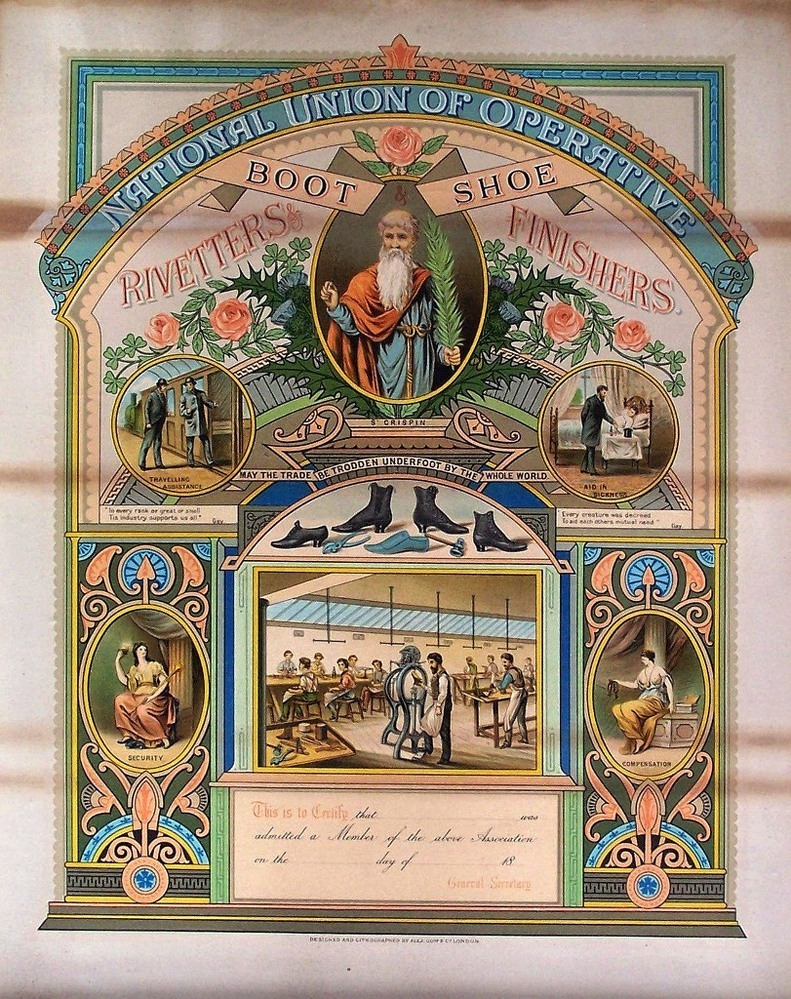 NATIONAL UNION OF OPERATIVE
BOOT & SHOE
RIVETTERS & FINISHERS.
ST CRISPIN
TRAVELLING
ASSISTANCE
"In every rank or great or small
Tis industry supports us all" Gay.
AID IN
SICKNESS
Every creature was decreed
To aid each others mutual need" Gay.
MAY THE TRADE BE TRODDEN UNDERFOOT BY THE WHOLE WORLD.
SECURITY
COMPENSATION
This is to Certify that was
admitted a Member of the above Association
on the day of 18
General Secretary
DESIGNED AND LITHOGRAPHED BY ALEX. GOW & CO LONDON